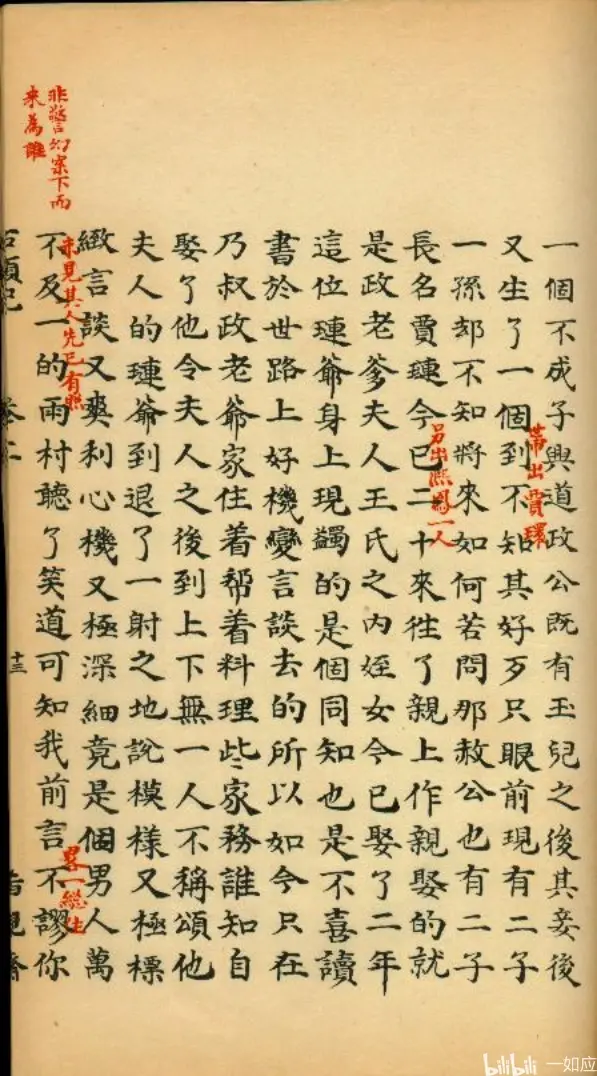 一個不成子興道政公既有玉兒之後其妾後
又生了一個到不知其好歹只眼前現有二子
帶出賈環
一孫却不知將來如何若問那赦公也有二子
長名賈璉今已二十來徃了親上作親娶的就
另出熙鳳一人
是政老爹夫人王氏之內姪女今已娶了二年
這位璉爺身上現蠲的是個同知也是不喜讀
書於世路上好機變言談去的所以如今只在
乃叔政老爺家住着帮着料理些家務誰知自
娶了他令夫人之後到上下無一人不稱頌他
夫人的璉爺到退了一射之地說模樣又極標
緻言談又爽利心機又極深細竟是個男人萬
未見其人先已有照
非警幻案下而
来為誰
不及一的雨村聽了笑道可知我前言不謬你
畧一總住
石頭記 卷二 十三 脂硯齋
bilibili 一如应